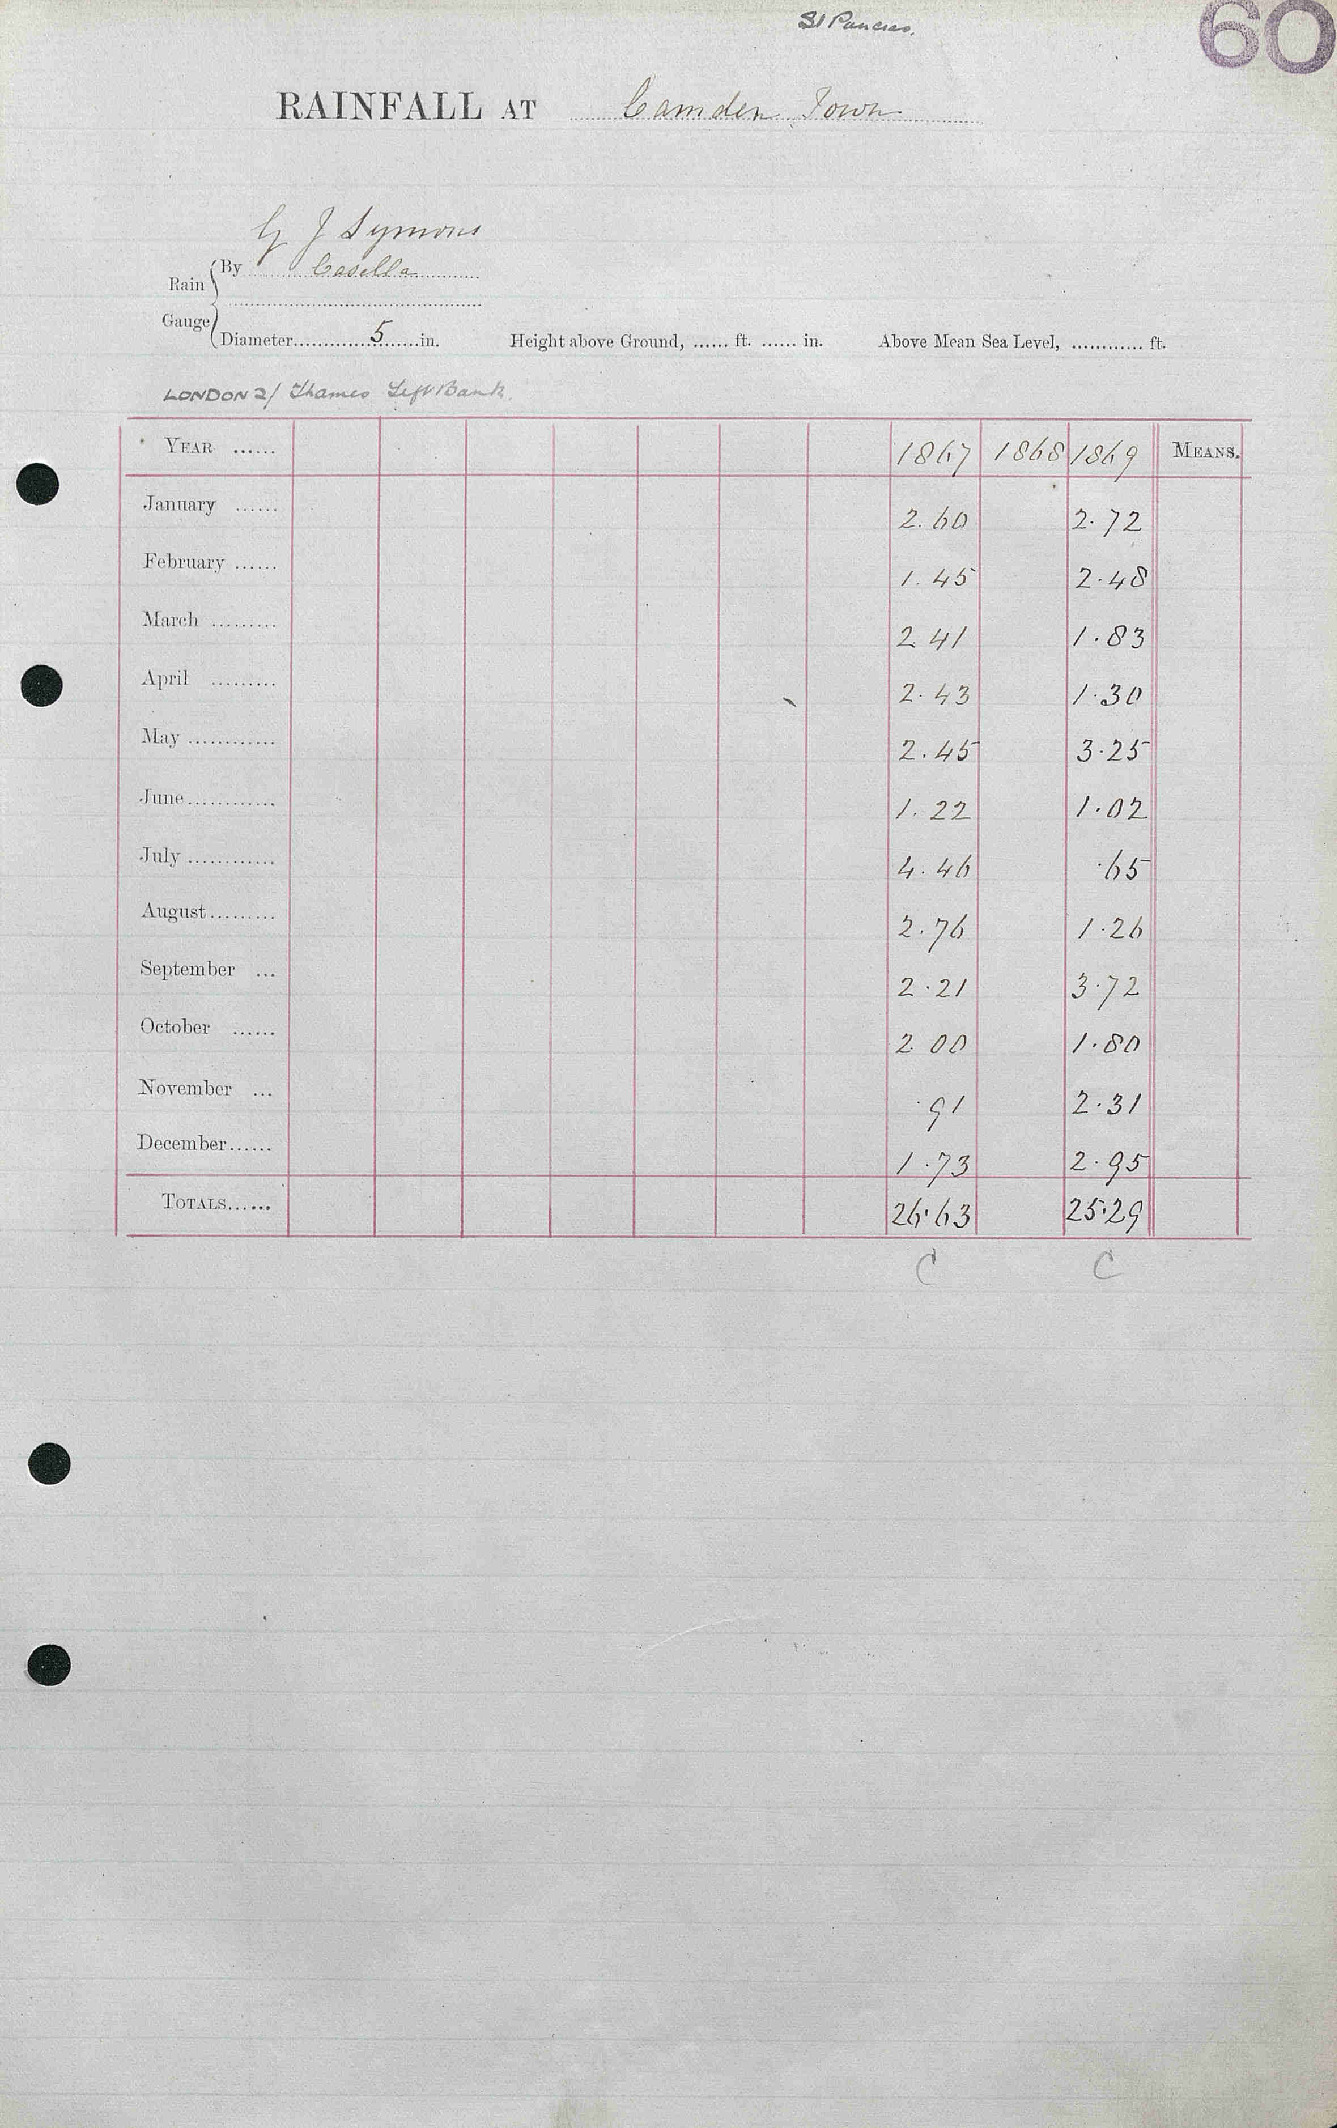 St Pancras.
60
RAINFALL AT Camden Town
G J Symons
Rain Gauge
By Casella
Diameter 5 in. Height above Ground, ...... ft. ...... in. Above Mean Sea Level, ............ ft.
LONDON 2/ Thames Left Bank.
YEAR ...... 1867 1868 1869 MEANS.
January ...... 2.60 2.72
February ...... 1.45 2.48
March ......... 2 41 1.83
April ......... 2.43 1.30
May ............ 2.45 3.25
June ............ 1.22 1.02
July ............ 4.46 .65
August ......... 2.76 1.26
September ... 2.21 3.72
October ...... 2 00 1.80
November ... .91 2.31
December ...... 1.73 2.95
TOTALS ...... 26.63 25.29
C C